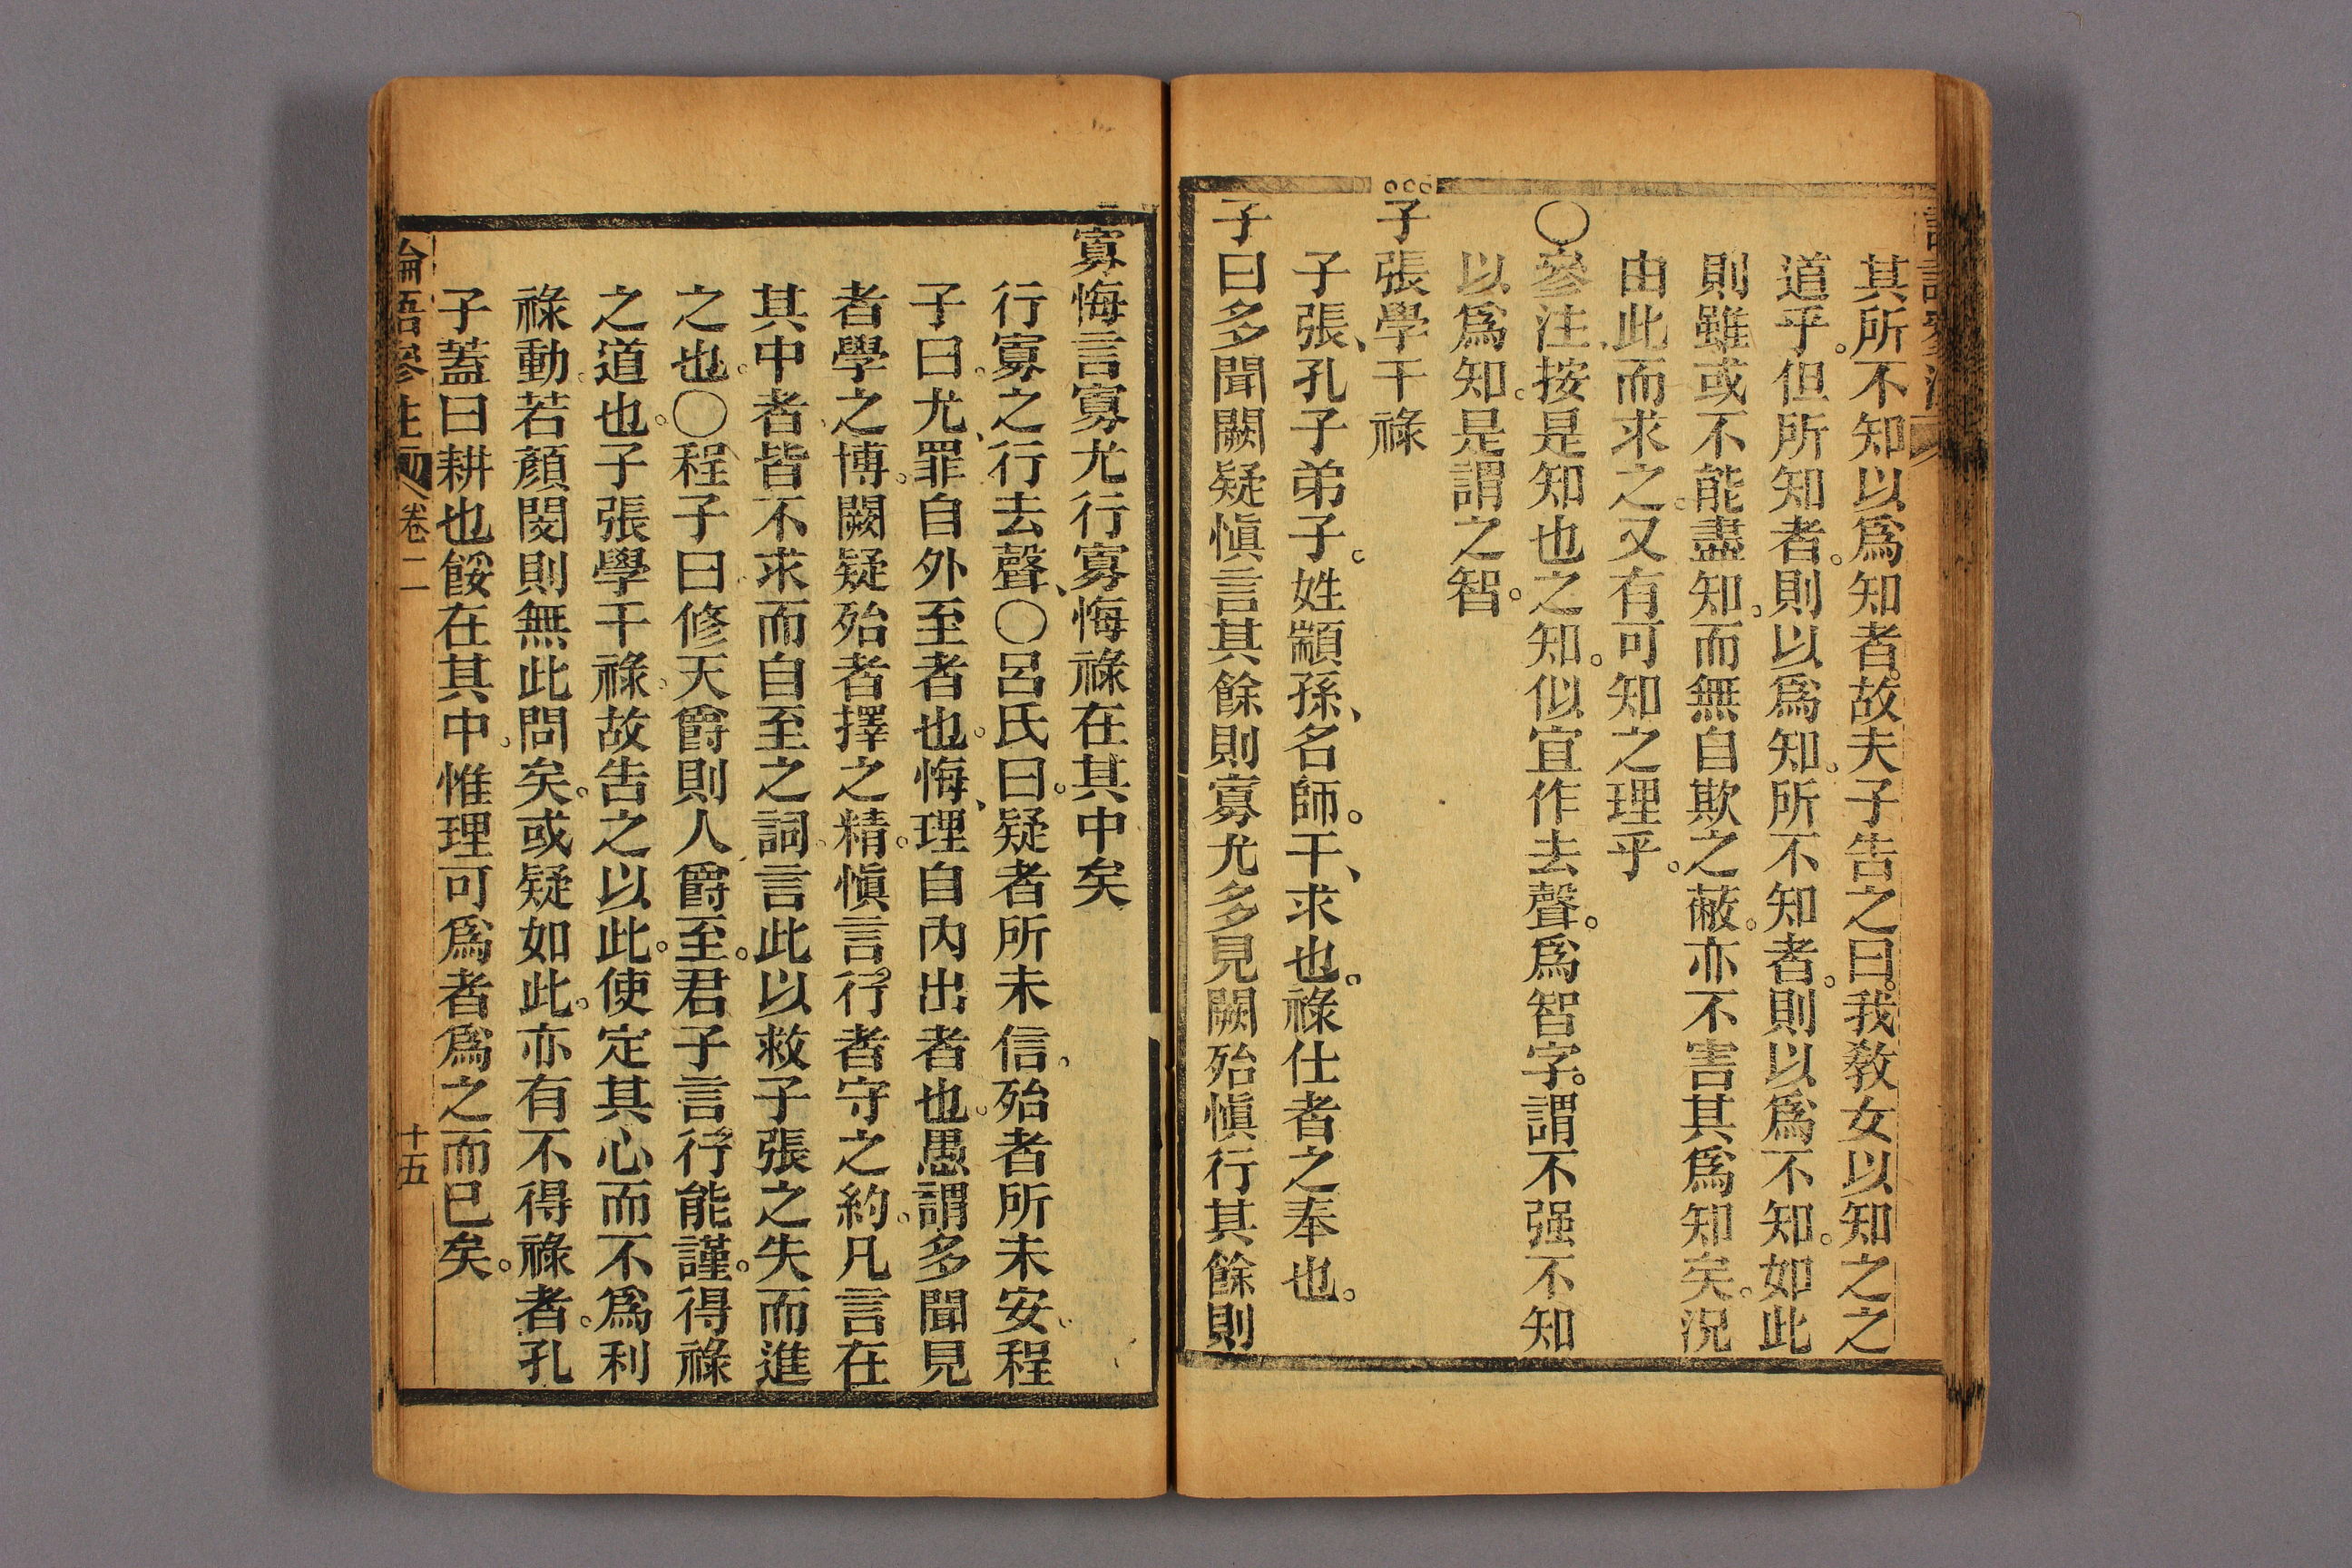 其所不知以爲知者。故夫子告之曰。我敎女以知之之
道乎。但所知者。則以爲知。所不知者。則以爲不知。如此
則雖或不能盡知。而無自欺之蔽。亦不害其爲知矣。況
由此而求之。又有可知之理乎。
〇參注、按是知也之知。似宜作去聲。爲智字。謂不强不知
以爲知。是謂之智。
子張學干祿
子張、孔子弟子。姓顓孫、名師。干、求也。祿仕者之奉也。
子曰多聞闕疑愼言其餘則寡尤多見闕殆愼行其餘則
寡悔言寡尤行寡悔祿在其中矣
行寡之行去聲、〇呂氏曰。疑者所未信。殆者所未安。程
子曰。尤、罪自外至者也。悔、理自內出者也。愚謂多聞見
者學之博。闕疑殆者擇之精。愼言行者守之約。凡言在
其中者、皆不求而自至之詞。言此以救子張之失而進
之也。〇程子曰修天爵則人爵至。君子言行能謹。得祿
之道也。子張學干祿。故告之以此。使定其心而不爲利
祿動。若顏閔則無此問矣。或疑如此。亦有不得祿者。孔
子蓋曰耕也餒在其中。惟理可爲者爲之而已矣。
論語參注 卷二 十五